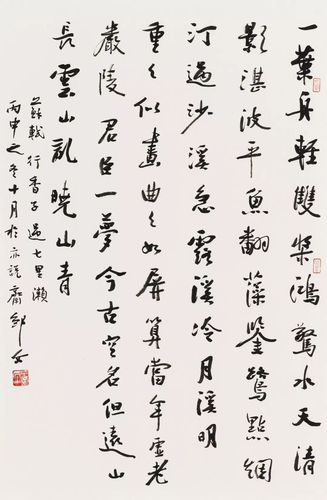 一葉舟輕雙槳鴻驚水天清
影湛波平魚翻藻鑒鷺點烟
汀過沙溪急霜溪冷月溪明
重々似畫曲々如屏算當年虛老
嚴陵君臣一夢今古空名但遠山
長雲山乱曉山青
蘇軾行香子過七里瀨
丙申之冬十月於亦說齋鄒